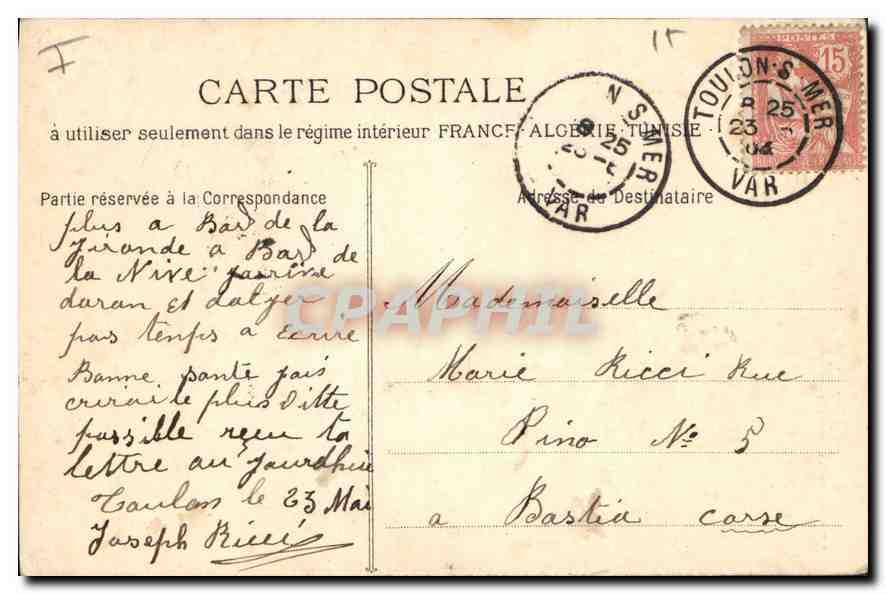 CARTE POSTALE
à utiliser seulement dans le régime intérieur FRANCE, ALGÉRIE, TUNISIE.
POSTES
15
TOULON-S-MER
8 25
23
VAR
N S MER
8 25
23
VAR
Partie réservée à la Correspondance
plus a Bord de la
Jironde a Bord de
la Nive jarrive
doran et
pas temps a Ecrire
Banne sante jais
crirai le plus Vitte
possible reçu ta
lettre au jourdhui
Toulon le 23 Mai
Joseph Ricci
Adresse du Destinataire
Mademoiselle
Marie Ricci Rue
Pino No 5
a Bastia corse
CPAPHIL